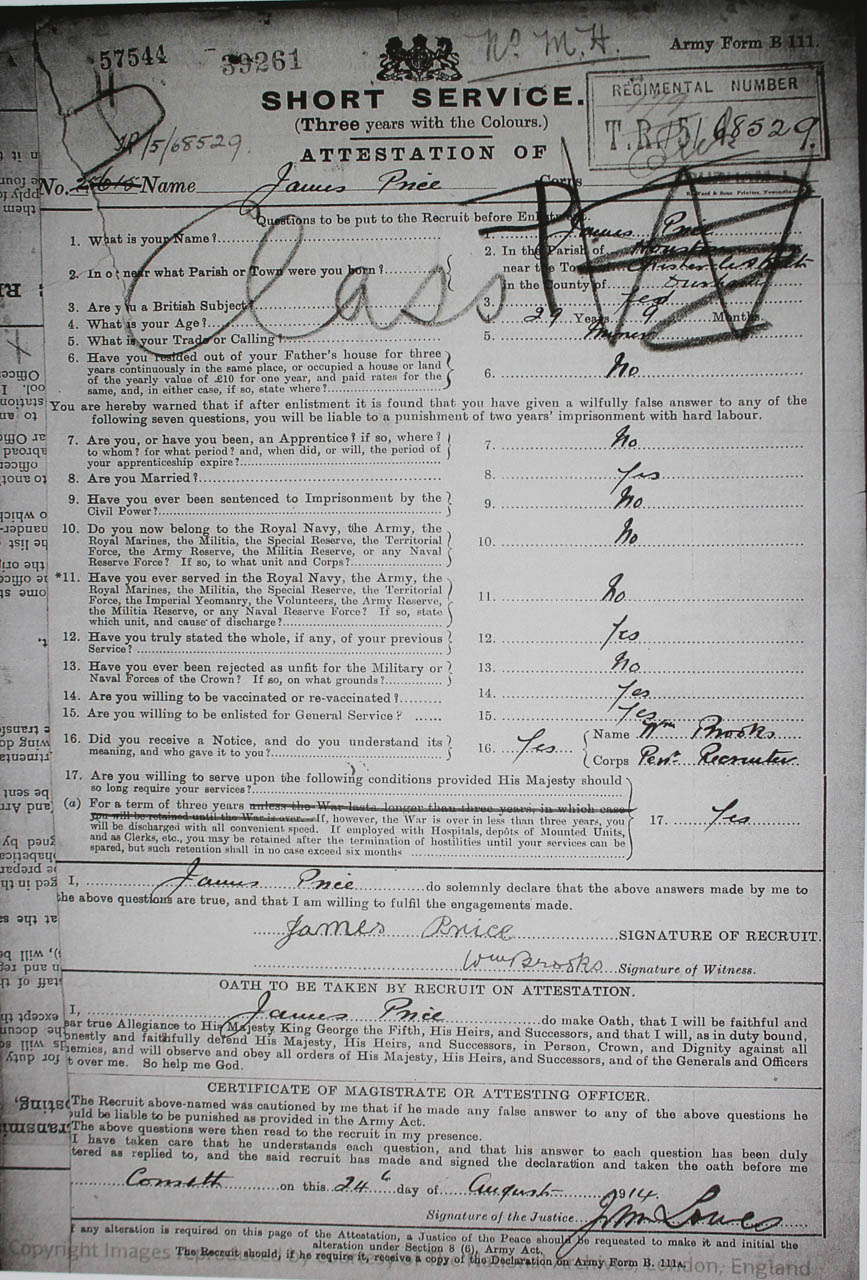 57544 39261 No. M.H. Army Form B 111.
SHORT SERVICE.
(Three years with the Colours.)
REGIMENTAL NUMBER
T.R/5/68529
TR/5/68529
ATTESTATION OF
No. Name James Price Corps
Class
Questions to be put to the Recruit before Enlistment.
1. What is your Name? 1. James Price
2. In or near what Parish or Town were you born? 2. In the Parish of
near the Town
in the County of Durham
3. Are you a British Subject? 3. Yes
4. What is your Age? 4. 29 Years 9 Months
5. What is your Trade or Calling? 5. Miner
6. Have you resided out of your Father's house for three
years continuously in the same place, or occupied a house or land
of the yearly value of £10 for one year, and paid rates for the
same, and, in either case, if so, state where? 6. No
You are hereby warned that if after enlistment it is found that you have given a wilfully false answer to any of the
following seven questions, you will be liable to a punishment of two years' imprisonment with hard labour.
7. Are you, or have you been, an Apprentice? if so, where?
to whom? for what period? and, when did, or will, the period of
your apprenticeship expire? 7. No
8. Are you Married? 8. Yes
9. Have you ever been sentenced to Imprisonment by the
Civil Power? 9. No
10. Do you now belong to the Royal Navy, the Army, the
Royal Marines, the Militia, the Special Reserve, the Territorial
Force, the Army Reserve, the Militia Reserve, or any Naval
Reserve Force? If so, to what unit and Corps? 10. No
*11. Have you ever served in the Royal Navy, the Army, the
Royal Marines, the Militia, the Special Reserve, the Territorial
Force, the Imperial Yeomanry, the Volunteers, the Army Reserve,
the Militia Reserve, or any Naval Reserve Force? If so, state
which unit, and cause of discharge? 11. No
12. Have you truly stated the whole, if any, of your previous
Service? 12. Yes
13. Have you ever been rejected as unfit for the Military or
Naval Forces of the Crown? If so, on what grounds? 13. No
14. Are you willing to be vaccinated or re-vaccinated? 14. Yes
15. Are you willing to be enlisted for General Service? 15. Yes
16. Did you receive a Notice, and do you understand its
meaning, and who gave it to you? 16. Yes Name Wm Brooks
Corps Penr. Recruiter
17. Are you willing to serve upon the following conditions provided His Majesty should
so long require your services?
(a) For a term of three years unless the War lasts longer than three years, in which case
you will be retained until the War is over. If, however, the War is over in less than three years, you
will be discharged with all convenient speed. If employed with Hospitals, depôts of Mounted Units,
and as Clerks, etc., you may be retained after the termination of hostilities until your services can be
spared, but such retention shall in no case exceed six months 17. Yes
I, James Price do solemnly declare that the above answers made by me to
the above questions are true, and that I am willing to fulfil the engagements made.
James Price SIGNATURE OF RECRUIT.
Wm Brooks Signature of Witness.
OATH TO BE TAKEN BY RECRUIT ON ATTESTATION.
I, James Price do make Oath, that I will be faithful and
ear true Allegiance to His Majesty King George the Fifth, His Heirs, and Successors, and that I will, as in duty bound,
onestly and faithfully defend His Majesty, His Heirs, and Successors, in Person, Crown, and Dignity against all
nemies, and will observe and obey all orders of His Majesty, His Heirs, and Successors, and of the Generals and Officers
t over me. So help me God.
CERTIFICATE OF MAGISTRATE OR ATTESTING OFFICER.
The Recruit above-named was cautioned by me that if he made any false answer to any of the above questions he
ould be liable to be punished as provided in the Army Act.
The above questions were then read to the recruit in my presence.
I have taken care that he understands each question, and that his answer to each question has been duly
tered as replied to, and the said recruit has made and signed the declaration and taken the oath before me
Consett on this 24 day of August 1914.
Signature of the Justice
f any alteration is required on this page of the Attestation, a Justice of the Peace should be requested to make it and initial the
alteration under Section 8 (6), Army Act.
The Recruit should, if he require it, receive a copy of the Declaration on Army Form B. 111A.
Copyright Images reproduced by National Archives, London, England